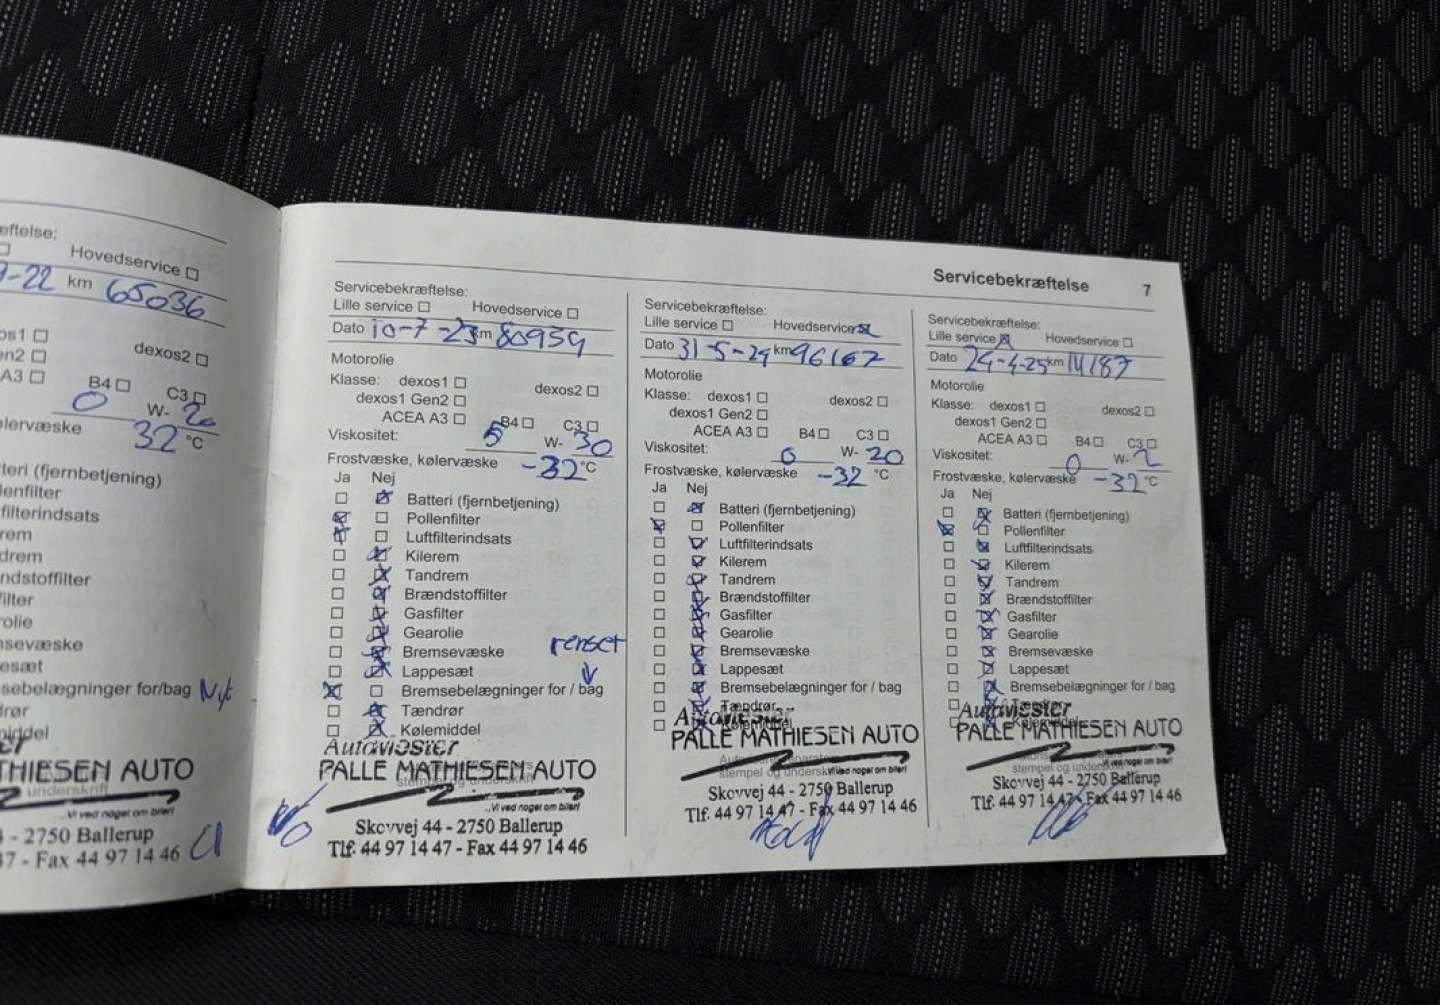 æftelse:
Hovedservice
9-22 km 65036
os1
en2 dexos2
A3 B4 C3
0 W- 20
ølervæske 32 °C
tteri (fjernbetjening)
lenfilter
filterindsats
rem
drem
ndstoffilter
filter
rolie
nsevæske
esæt
sebelægninger for/bag Nyt
drør
middel
THIESEN AUTO
underskrift
...Vi ved noget om biler!
- 2750 Ballerup
47 - Fax 44 97 14 46
Servicebekræftelse 7
Servicebekræftelse:
Lille service Hovedservice
Dato 10-7-23 km 80959
Motorolie
Klasse: dexos1 dexos2
dexos1 Gen2
ACEA A3 B4 C3
Viskositet: 5 W- 30
Frostvæske, kølervæske -32 °C
Ja Nej
Batteri (fjernbetjening)
Pollenfilter
Luftfilterindsats
Kilerem
Tandrem
Brændstoffilter
Gasfilter
Gearolie
Bremsevæske renset
Lappesæt
Bremsebelægninger for / bag
Tændrør
Kølemiddel
Automester
PALLE MATHIESEN AUTO
...Vi ved noget om biler!
Skovvej 44 - 2750 Ballerup
Tlf. 44 97 14 47 - Fax 44 97 14 46
Servicebekræftelse:
Lille service Hovedservice
Dato 31-5-24 km 96162
Motorolie
Klasse: dexos1 dexos2
dexos1 Gen2
ACEA A3 B4 C3
Viskositet: 0 W- 20
Frostvæske, kølervæske -32 °C
Ja Nej
Batteri (fjernbetjening)
Pollenfilter
Luftfilterindsats
Kilerem
Tandrem
Brændstoffilter
Gasfilter
Gearolie
Bremsevæske
Lappesæt
Bremsebelægninger for / bag
Tændrør
Kølemiddel
Automester
PALLE MATHIESEN AUTO
stempel og underskrift
...Vi ved noget om biler!
Skovvej 44 - 2750 Ballerup
Tlf. 44 97 14 47 - Fax 44 97 14 46
Servicebekræftelse:
Lille service Hovedservice
Dato 24-4-25 km 114187
Motorolie
Klasse: dexos1 dexos2
dexos1 Gen2
ACEA A3 B4 C3
Viskositet: 0 W- 2
Frostvæske, kølervæske -32 °C
Ja Nej
Batteri (fjernbetjening)
Pollenfilter
Luftfilterindsats
Kilerem
Tandrem
Brændstoffilter
Gasfilter
Gearolie
Bremsevæske
Lappesæt
Bremsebelægninger for / bag
Tændrør
Kølemiddel
Automester
PALLE MATHIESEN AUTO
stempel og underskrift
...Vi ved noget om biler!
Skovvej 44 - 2750 Ballerup
Tlf. 44 97 14 47 - Fax 44 97 14 46